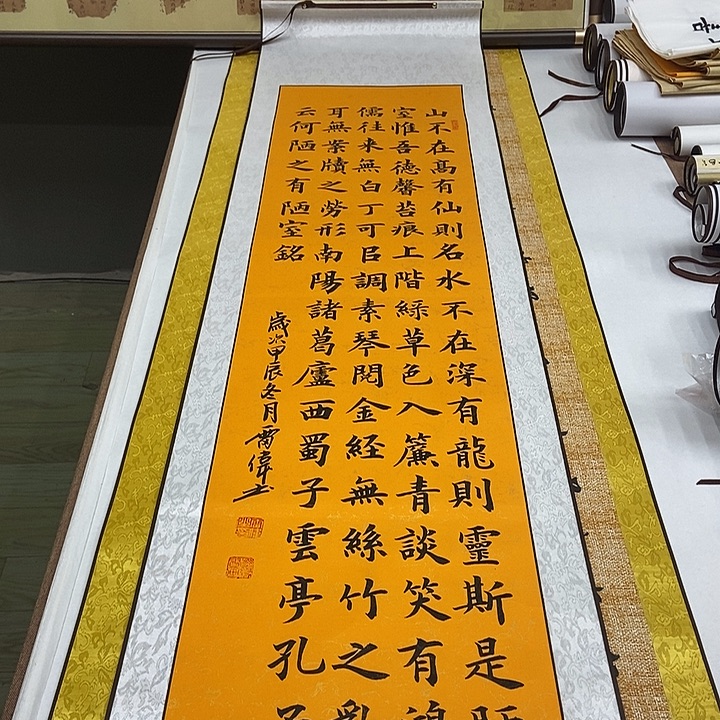 山不在高有仙則名水不在深有龍則靈斯是陋
室惟吾德馨苔痕上階綠草色入簾青談笑有鴻
儒往來無白丁可㠯調素琴閱金經無絲竹之亂
耳無案牘之勞形南陽諸葛廬西蜀子雲亭孔子
云何陋之有陋室銘
歲次甲辰冬月雷偉